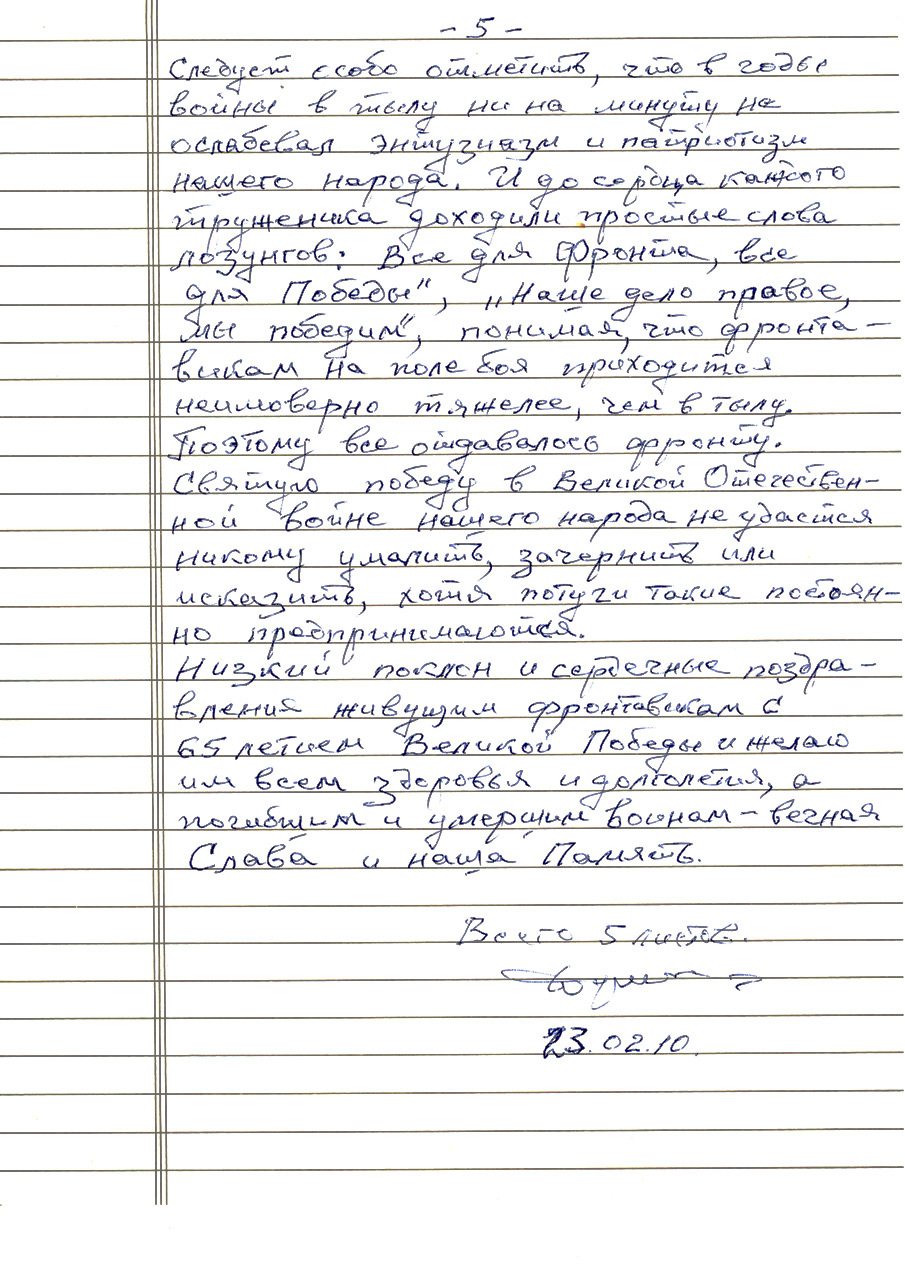 - 5 -
Следует особо отметить, что в годы
войны в тылу ни на минуту не
ослабевал энтузиазм и патриотизм
нашего народа. И до сердца каждого
труженика доходили простые слова
лозунгов: Все для Фронта, все
для Победы", „Наше дело правое,
мы победим", понимая, что фронта-
викам на поле боя приходится
неимоверно тяжелее, чем в тылу.
Поэтому все отдавалось фронту.
Святую победу в Великой Отечествен-
ной войне нашего народа не удастся
никому умалить, зачернить или
исказить, хотя потуги такие постоян-
но предпринимаются.
Низкий поклон и сердечные поздра-
вления живущим фронтовикам с
65 летием Великой Победы и желаю
им всем здоровья и долголетия, а
погибшим и умершим воинам - вечная
Слава и наша Память.
Всего 5 листов.
23.02.10.